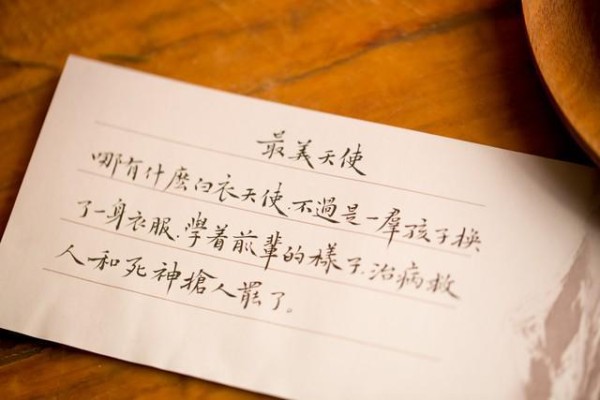 最美天使
哪有什麽白衣天使,不過是一羣孩子換
了一身衣服,學着前輩的樣子,治病救
人和死神搶人罷了。